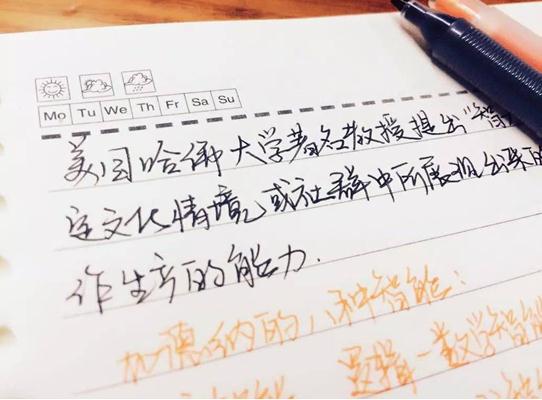 Mo Tu We Th Fr Sa Su
美国哈佛大学著名教授提出"智
定文化情境或社群中所展现出来的
作生产的能力.
加德纳的八种智能:
逻辑-数学智能